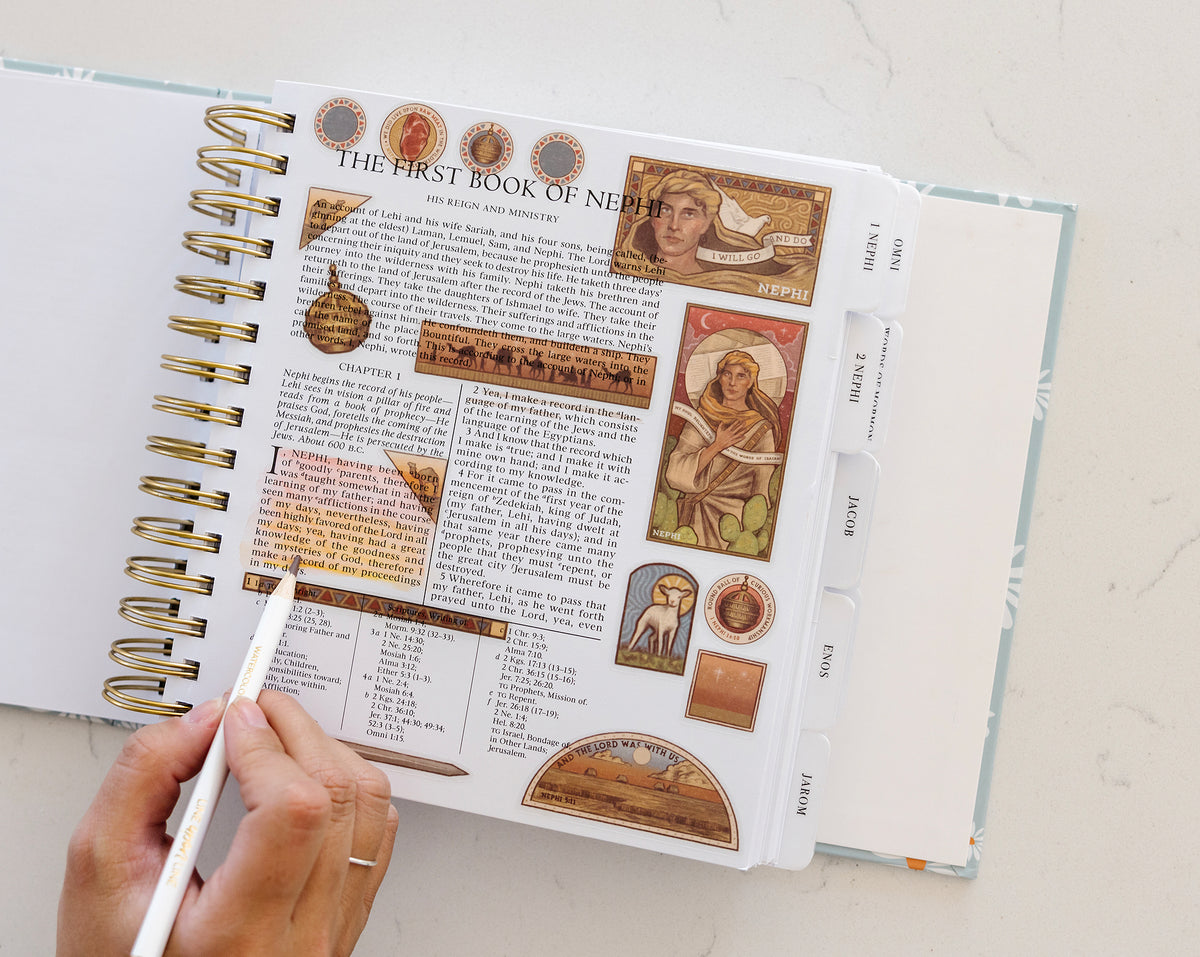 WE DID LIVE UPON RAW MEAT IN THE WI
THE FIRST BOOK OF NEPHI
HIS REIGN AND MINISTRY
An account of Lehi and his wife Sariah, and his four sons, being called, (be-
ginning at the eldest) Laman, Lemuel, Sam, and Nephi. The Lord warns Lehi
to depart out of the land of Jerusalem, because he prophesieth unto the people
concerning their iniquity and they seek to destroy his life. He taketh three days'
journey into the wilderness with his family. Nephi taketh his brethren and
returneth to the land of Jerusalem after the record of the Jews. The account of
their sufferings. They take the daughters of Ishmael to wife. They take their
families and depart into the wilderness. Their sufferings and afflictions in the
wilderness. The course of their travels. They come to the large waters. Nephi's
brethren rebel against him. He confoundeth them, and buildeth a ship. They
call the name of the place Bountiful. They cross the large waters into the
promised land, and so forth. This is according to the account of Nephi; or in
other words, I, Nephi, wrote this record.
CHAPTER 1
Nephi begins the record of his people—
Lehi sees in vision a pillar of fire and
reads from a book of prophecy—He
praises God, foretells the coming of the
Messiah, and prophesies the destruction
of Jerusalem—He is persecuted by the
Jews. About 600 B.C.
I, NEPHI, having been born
of goodly parents, therefore I
was taught somewhat in all the
learning of my father; and having
seen many afflictions in the course
of my days, nevertheless, having
been highly favored of the Lord in all
my days; yea, having had a great
knowledge of the goodness and
the mysteries of God, therefore I
make a record of my proceedings
in my days.
2 Yea, I make a record in the lan-
guage of my father, which consists
of the learning of the Jews and the
language of the Egyptians.
3 And I know that the record which
I make is true; and I make it with
mine own hand; and I make it ac-
cording to my knowledge.
4 For it came to pass in the com-
mencement of the first year of the
reign of Zedekiah, king of Judah,
(my father, Lehi, having dwelt at
Jerusalem in all his days); and in
that same year there came many
prophets, prophesying unto the
people that they must repent, or
the great city Jerusalem must be
destroyed.
5 Wherefore it came to pass that
my father, Lehi, as he went forth
prayed unto the Lord, yea, even
1:2 (2–3);
3:25 (25, 28).
oring Father and
ducation;
ily, Children,
ponsibilities toward;
ily, Love within.
Affliction;
Scriptures, Writing of.
2a Mosiah 1:4;
Morm. 9:32 (32–33).
3a 1 Ne. 14:30;
2 Ne. 25:20;
Mosiah 1:6;
Alma 3:12;
Ether 5:3 (1–3).
4a 1 Ne. 2:4;
Mosiah 6:4.
b 2 Kgs. 24:18;
2 Chr. 36:10;
Jer. 37:1; 44:30; 49:34;
52:3 (3–5);
Omni 1:15.
c 1 Chr. 9:3;
2 Chr. 15:9;
Alma 7:10.
d 2 Kgs. 17:13 (13–15);
2 Chr. 36:15 (15–16);
Jer. 7:25; 26:20.
TG Prophets, Mission of.
e TG Repent.
f Jer. 26:18 (17–19);
2 Ne. 1:4;
Hel. 8:20.
TG Israel, Bondage of,
in Other Lands;
Jerusalem.
I WILL GO
AND DO
NEPHI
NEPHI
ROUND BALL OF CURIOUS WORKMANSHIP
1 NEPHI 16:10
AND THE LORD WAS WITH US
1 NEPHI
OMNI
2 NEPHI
WORDS OF MORMON
JACOB
ENOS
JAROM
WATERCOLO